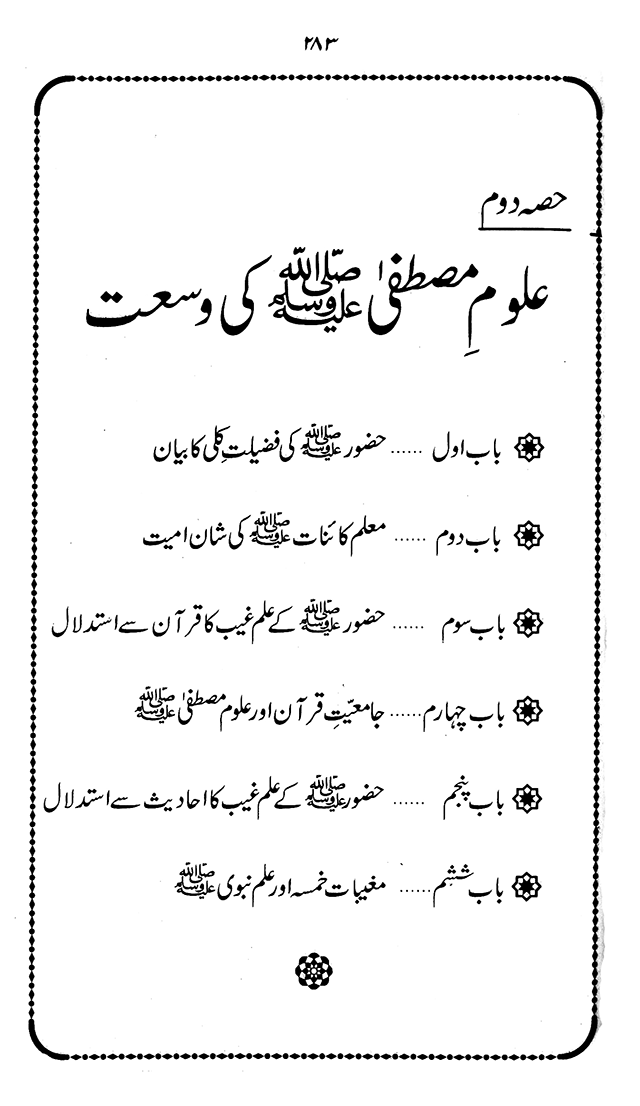 ۲۸۳
حصہ دوم
علومِ مصطفیٰ ﷺ کی وسعت
باب اول ...... حضور ﷺ کی فضیلتِ کلی کا بیان
باب دوم ...... معلم کائنات ﷺ کی شان امیت
باب سوم ...... حضور ﷺ کے علم غیب کا قرآن سے استدلال
باب چہارم ...... جامعیّتِ قرآن اور علوم مصطفیٰ ﷺ
باب پنجم ...... حضور ﷺ کے علم غیب کا احادیث سے استدلال
باب ششم ...... مغیبات خمسہ اور علم نبوی ﷺ